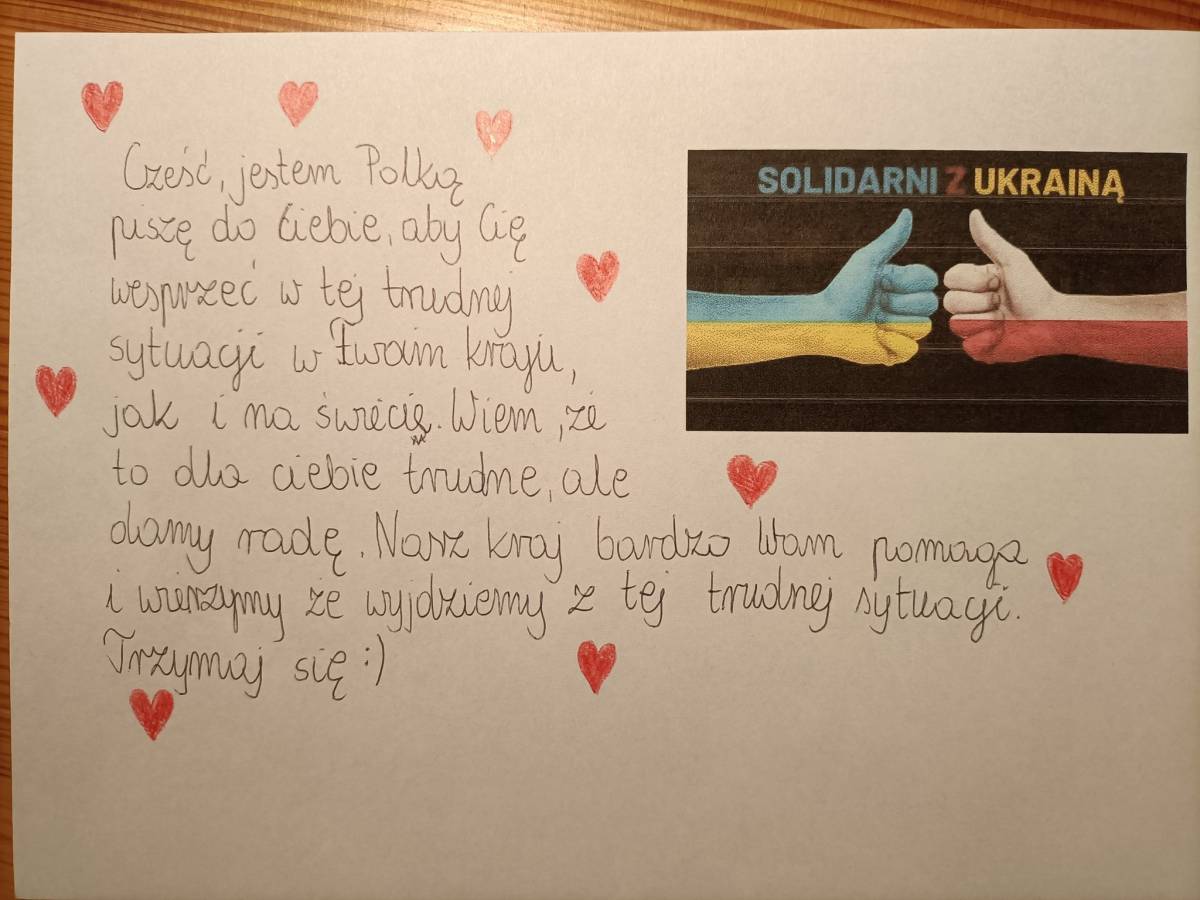 Cześć, jestem Polką
piszę do Ciebie, aby Cię
wesprzeć w tej trudnej
sytuacji w Twoim kraju,
jak i na świecie. Wiem, że
to dla ciebie trudne, ale
damy radę. Nasz kraj bardzo Wam pomaga
i wierzymy że wyjdziemy z tej trudnej sytuacji.
Trzymaj się :)
SOLIDARNI Z UKRAINĄ